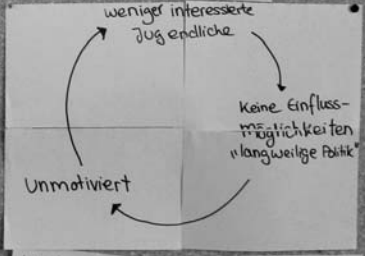 weniger interessierte
Jugendliche
Keine Einfluss-
möglichkeiten
"langweilige Politik"
Unmotiviert